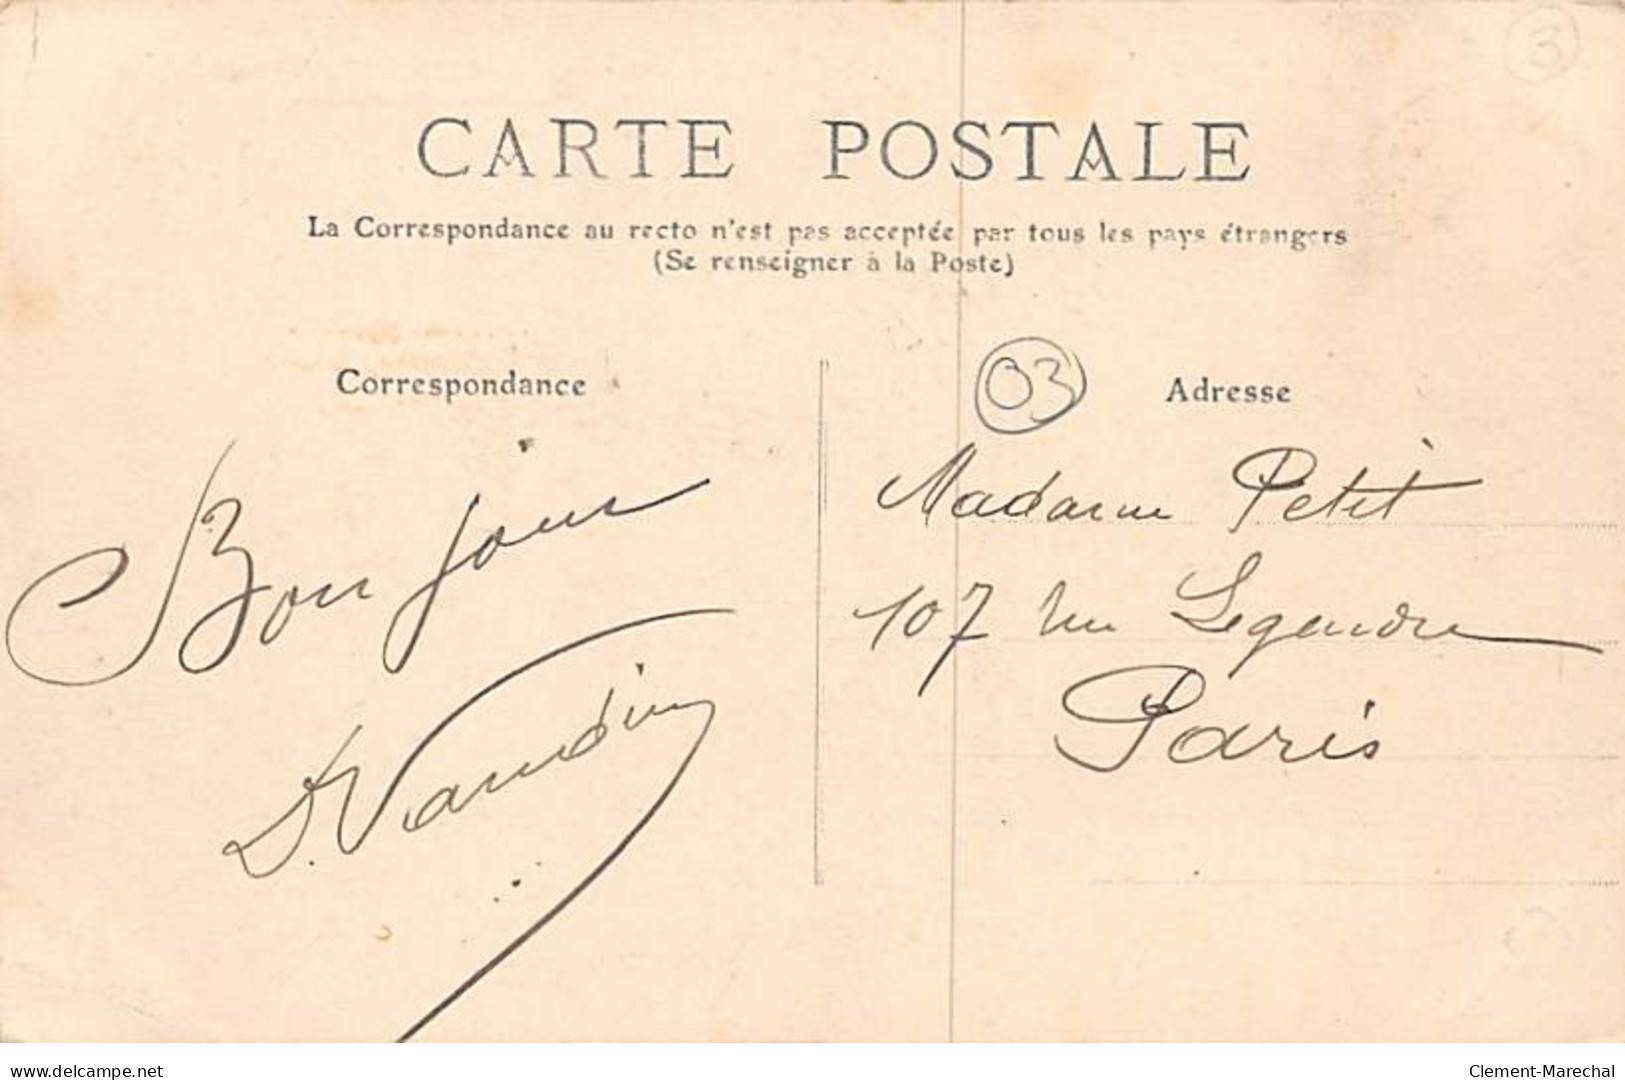 3
CARTE POSTALE
La Correspondance au recto n'est pas acceptée par tous les pays étrangers
(Se renseigner à la Poste)
Correspondance
Bonjour
03
Adresse
Madame Petit
107 rue Legendre
Paris
www.delcampe.net
Clement-Marechal